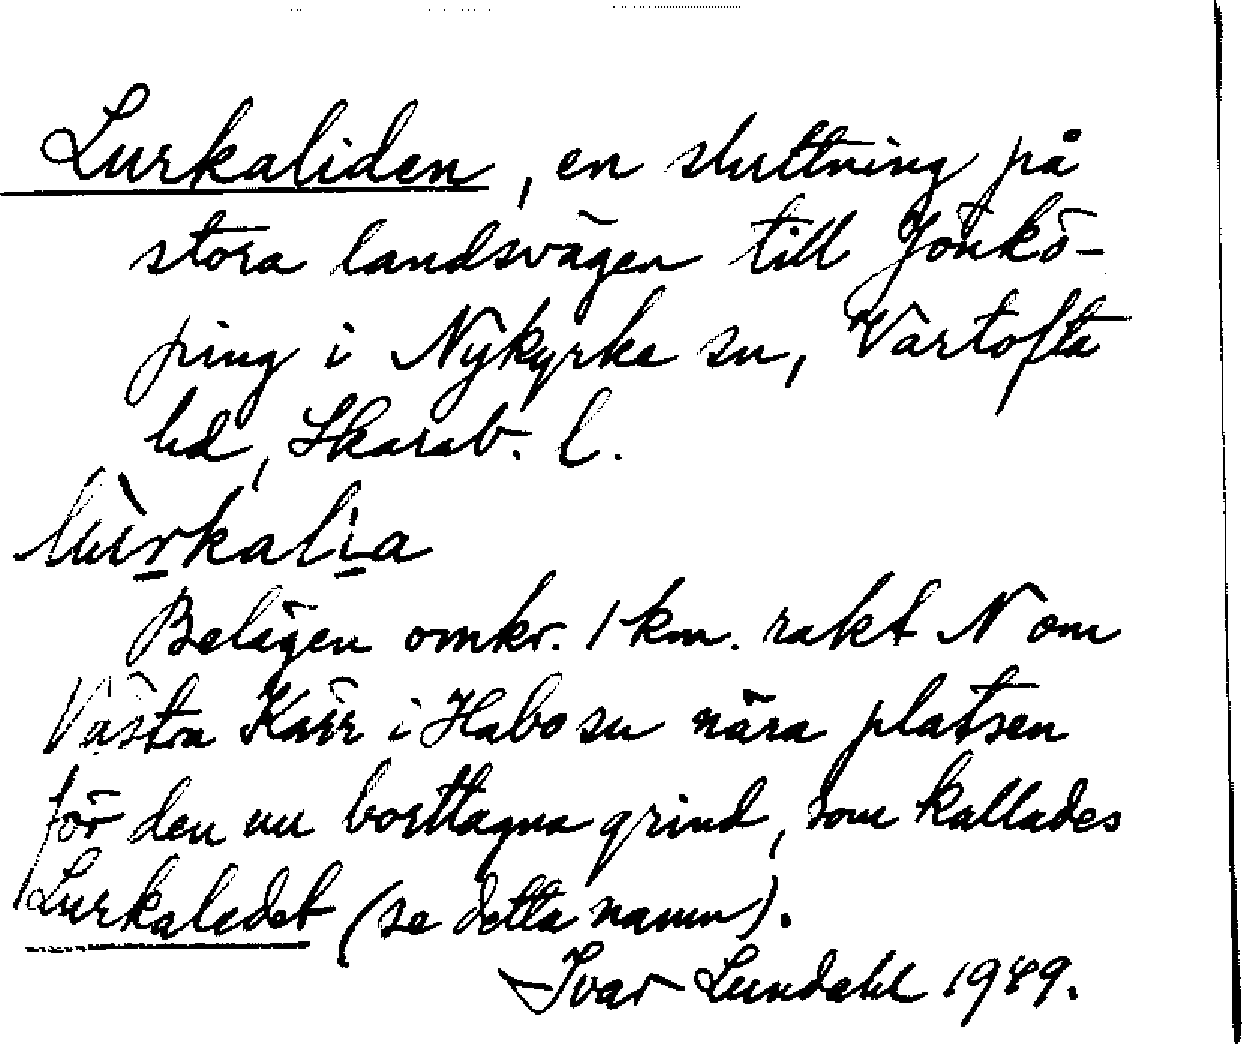 Lurkaliden, en sluttning på
stora landsvägen till Jönkö-
ping i Nykyrke sn, Vartofta
hd, Skarab. l.
lùrkalia
Belägen omkr. 1 km. rakt N om
Västra Kärr i Habo sn nära platsen
för den nu borttagna grind, som kallades
Lurkaledet (se detta namn).
Ivar Lundahl 1949.